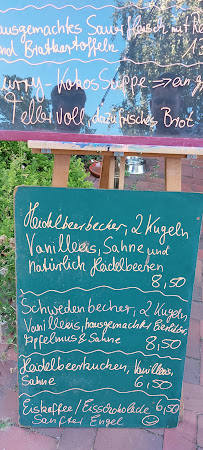 ausgemachtes Sauerfleisch mit Re
und Bratkartoffeln
13
urry Kokos Suppe → ein g
Teller voll, dazu frisches Brot
Heidelbeerbecher, 2 Kugeln
Vanilleeis, Sahne und
natürlich Heidelbeeren
8,50
Schwedenbecher, 2 Kugeln
Vanilleeis, hausgemachter Eierlikör,
Apfelmus & Sahne
8,50
Heidelbeerkuchen, Vanilleeis,
Sahne 6,50
Eiskaffee / Eisschokolade 6,50
Sanfter Engel ☺